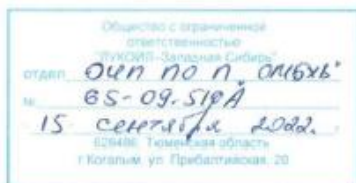 Общество с ограниченной
ответственностью
"ЛУКОЙЛ-Западная Сибирь"
отдел ОЧП ПО П.
№ 65-09-519А
15 сентября 2022.
628486, Тюменская область
г.Когалым, ул. Прибалтийская, 20